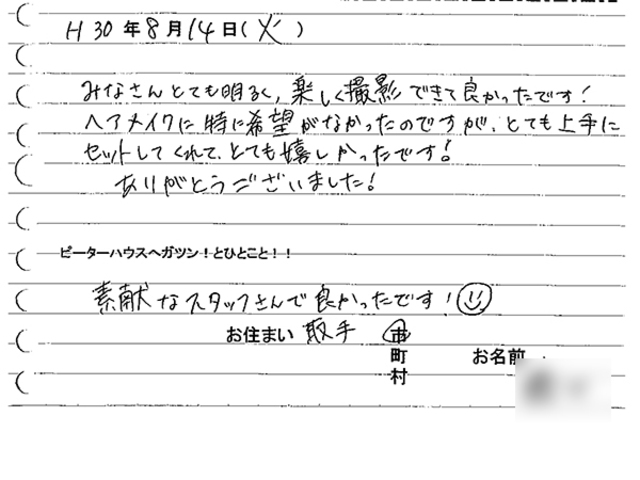 H 30 年 8 月 14 日 ( 火 )
みなさんとても明るく、楽しく撮影できて良かったです！
ヘアメイクに特に希望がなかったのですが、とても上手に
セットしてくれて、とても嬉しかったです！
ありがとうございました！
ピーターハウスへガツン！とひとこと！！
素献なスタッフさんで良かったです！
お住まい 取手 市
町
村
お名前